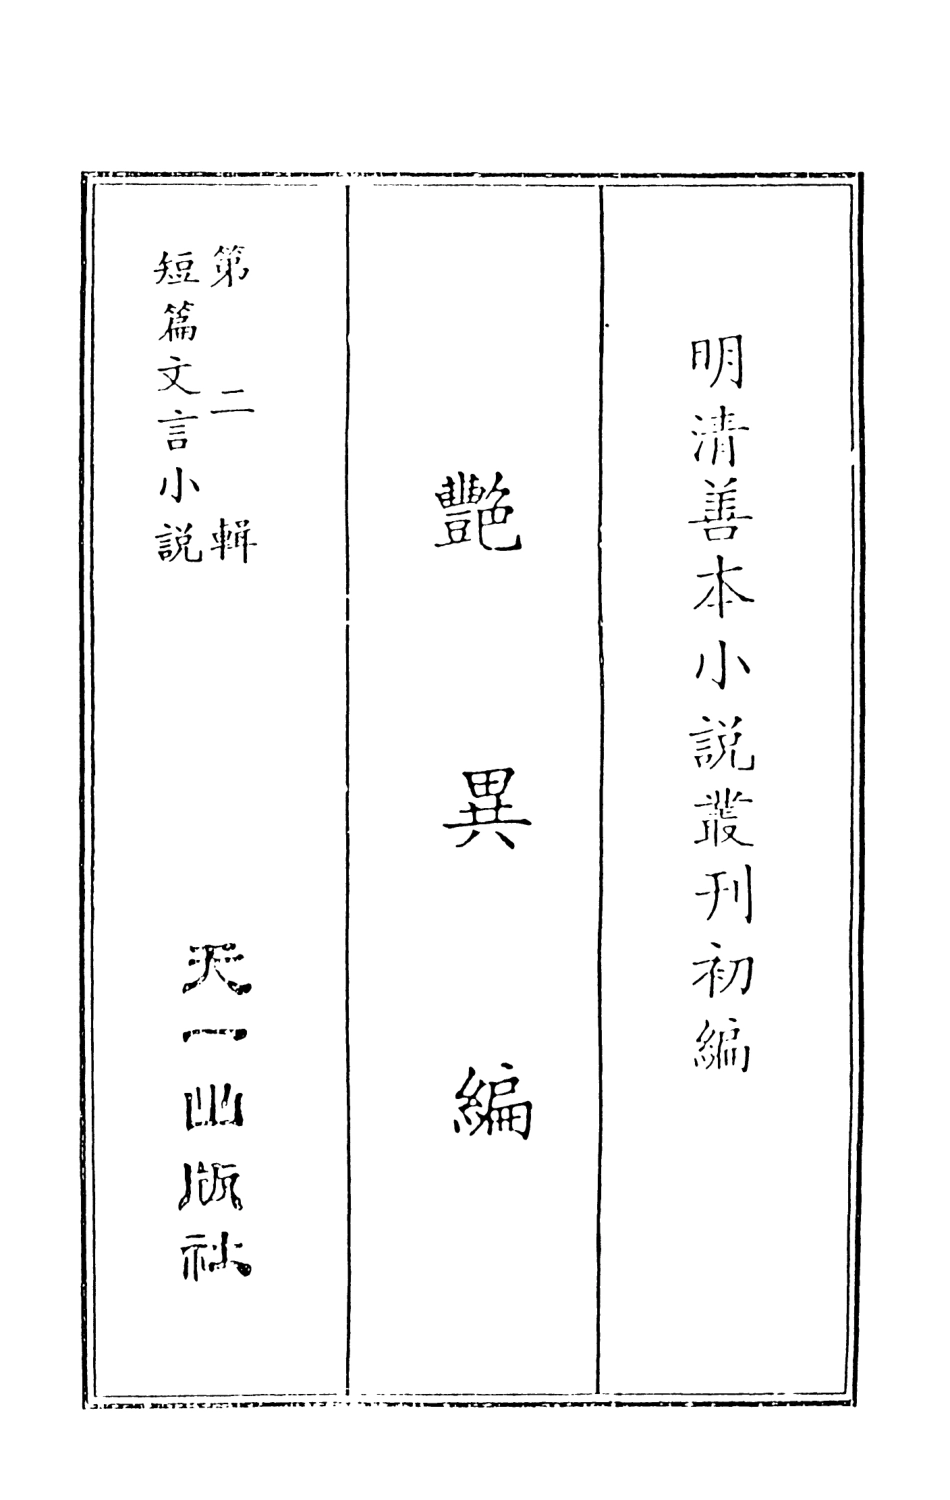 明清善本小説叢刊初編
豔異編
第二輯
短篇文言小説
天一出版社